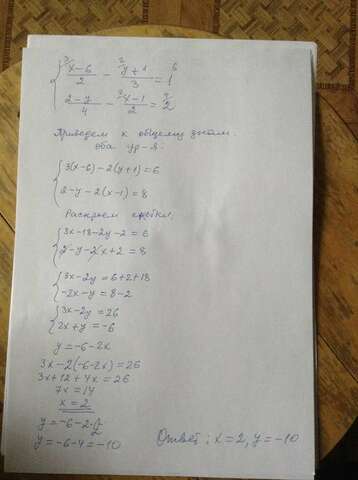 { ³⁾x-6/2 - ²⁾y+1/3 = 1 ⁶⁾
2-y/4 - ²⁾x-1/2 = 2 ⁴⁾
Приведем к общему знам.
оба ур-я:
{ 3(x-6)-2(y+1)=6
2-y-2(x-1)=8
Раскроем скобки,
{ 3x-18-2y-2=6
2-y-2x+2=8
{ 3x-2y=6+2+18
-2x-y=8-2
{ 3x-2y=26
2x+y=-6
y=-6-2x
3x-2(-6-2x)=26
3x+12+4x=26
7x=14
x=2
y=-6-2·2
y=-6-4=-10 Ответ: x=2, y=-10